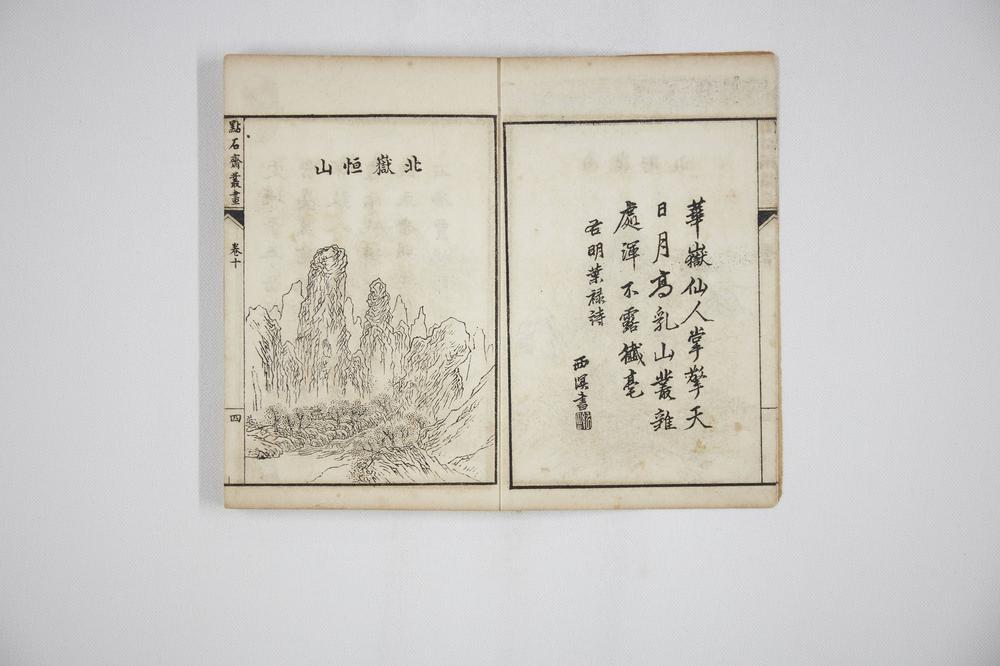 華嶽仙人掌擎天
日月高乳山叢雜
處渾不露纎毫
右明葉祿詩
西溟書
北嶽恒山
點石齋叢畫
卷十
四